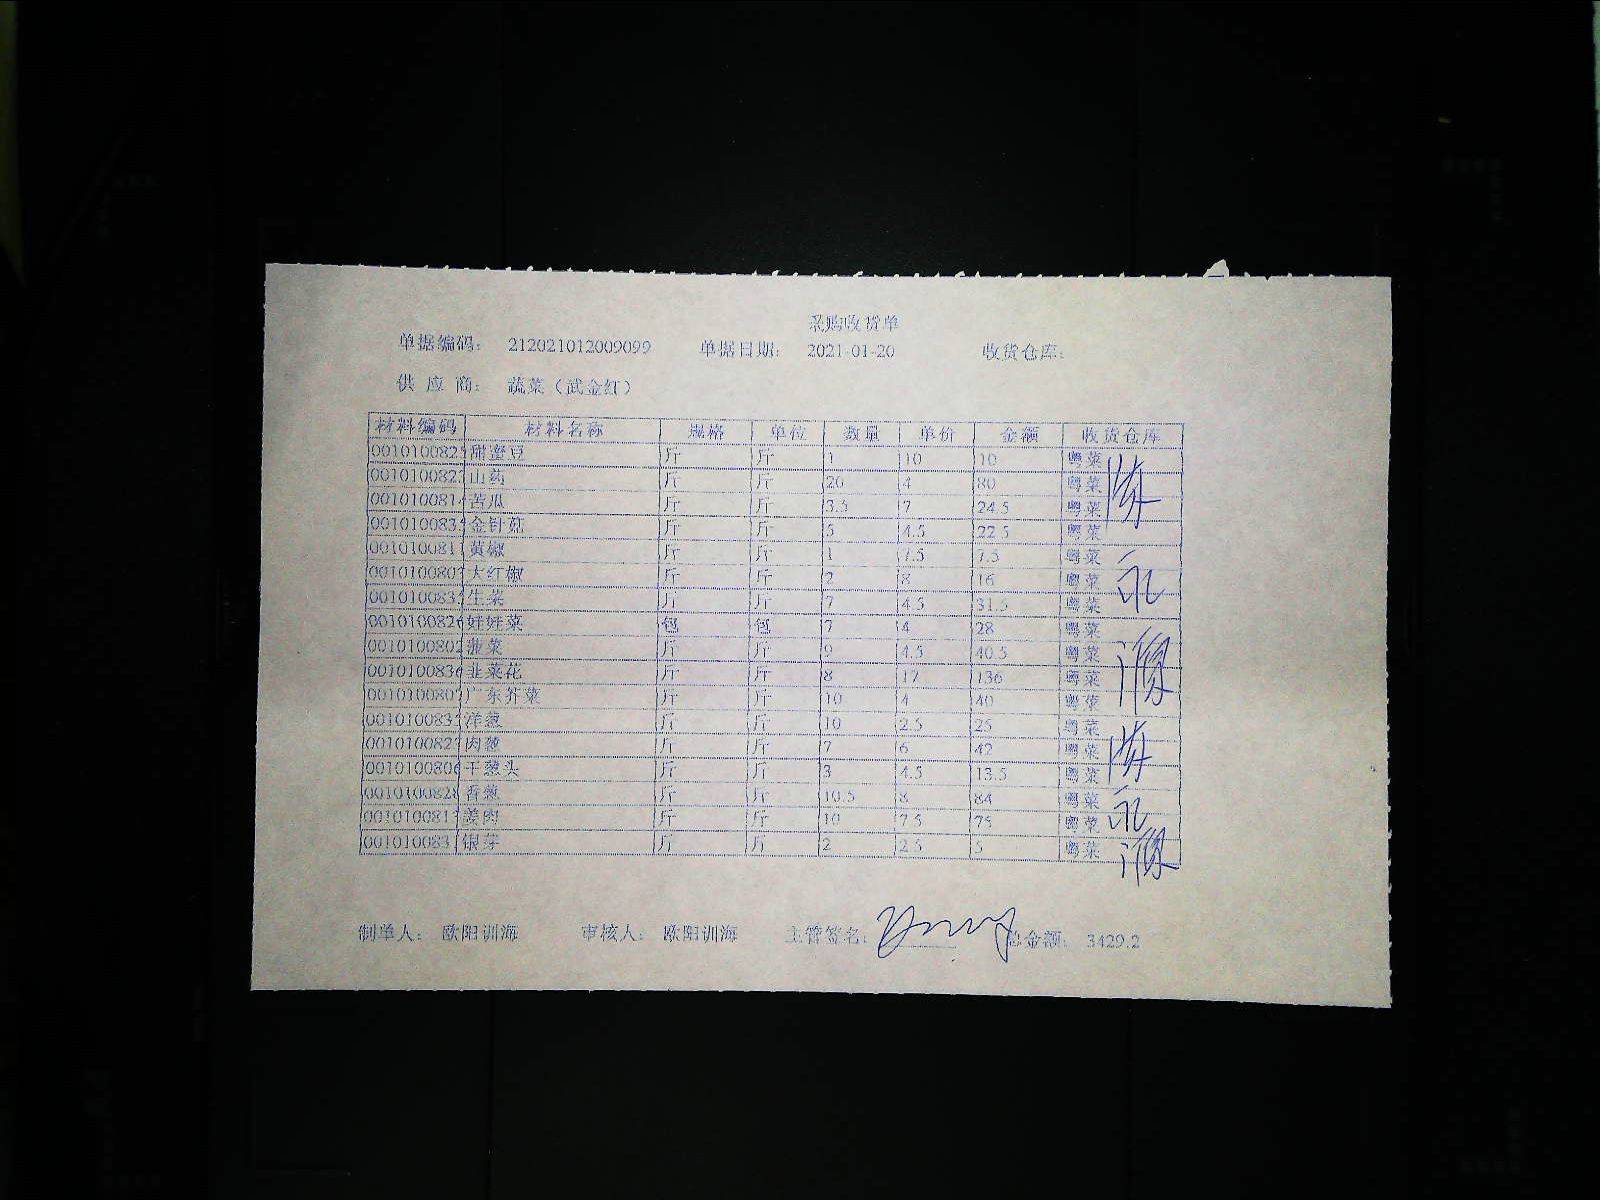 采购收货单
单据编码： 212021012009099 单据日期： 2021-01-20 收货仓库：
供 应 商： 蔬菜（武金红）
材料编码 材料名称 规格 单位 数量 单价 金额 收货仓库
001010082 甜蜜豆 斤 斤 1 10 10 粤菜
001010082 山药 斤 斤 20 4 80 粤菜
0010100814 苦瓜 斤 斤 3.5 7 24.5 粤菜
001010083 金针菇 斤 斤 5 4.5 22.5 粤菜
001010081 黄椒 斤 斤 1 7.5 7.5 粤菜
0010100803 大红椒 斤 斤 2 8 16 粤菜
001010083 生菜 斤 斤 7 4.5 31.5 粤菜
0010100826 好好菜 包 包 7 4 28 粤菜
0010100802 菠菜 斤 斤 9 4.5 40.5 粤菜
0010100836 韭菜花 斤 斤 8 17 136 粤菜
0010100807 广东芥菜 斤 斤 10 4 40 粤菜
001010083 洋葱 斤 斤 10 2.5 25 粤菜
001010082 肉葱 斤 斤 7 6 42 粤菜
0010100806 干葱头 斤 斤 3 4.5 13.5 粤菜
0010100828 香葱 斤 斤 10.5 8 84 粤菜
001010081 姜肉 斤 斤 10 7.5 75 粤菜
001010083 银芽 斤 斤 2 2.5 5 粤菜
制单人： 欧阳训海 审核人： 欧阳训海 主管签名： 总金额： 3429.2